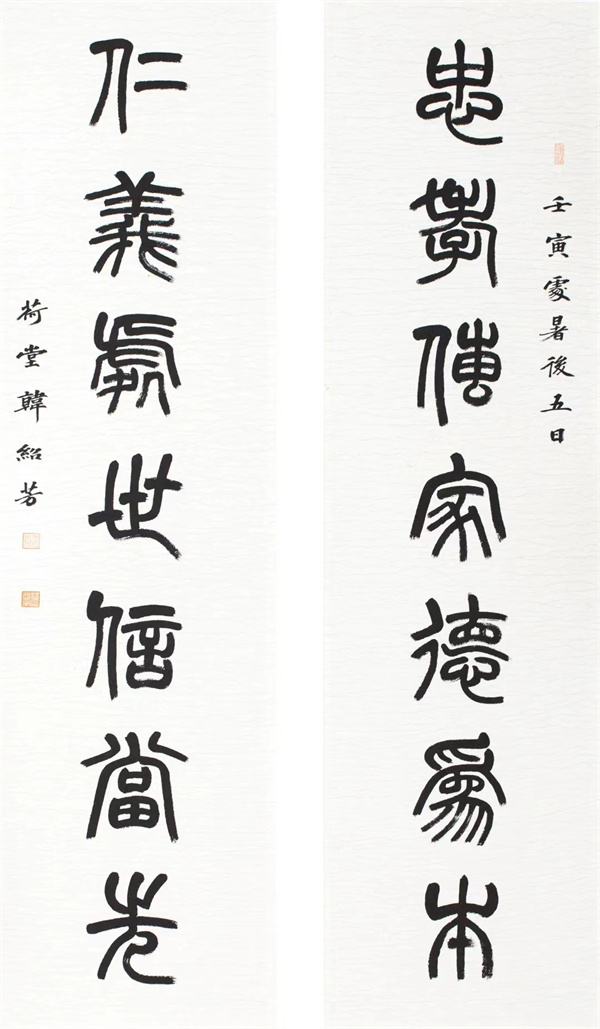 壬寅處暑後五日
忠孝傳家德為本
仁義處世信當先
荷堂韓紹芳